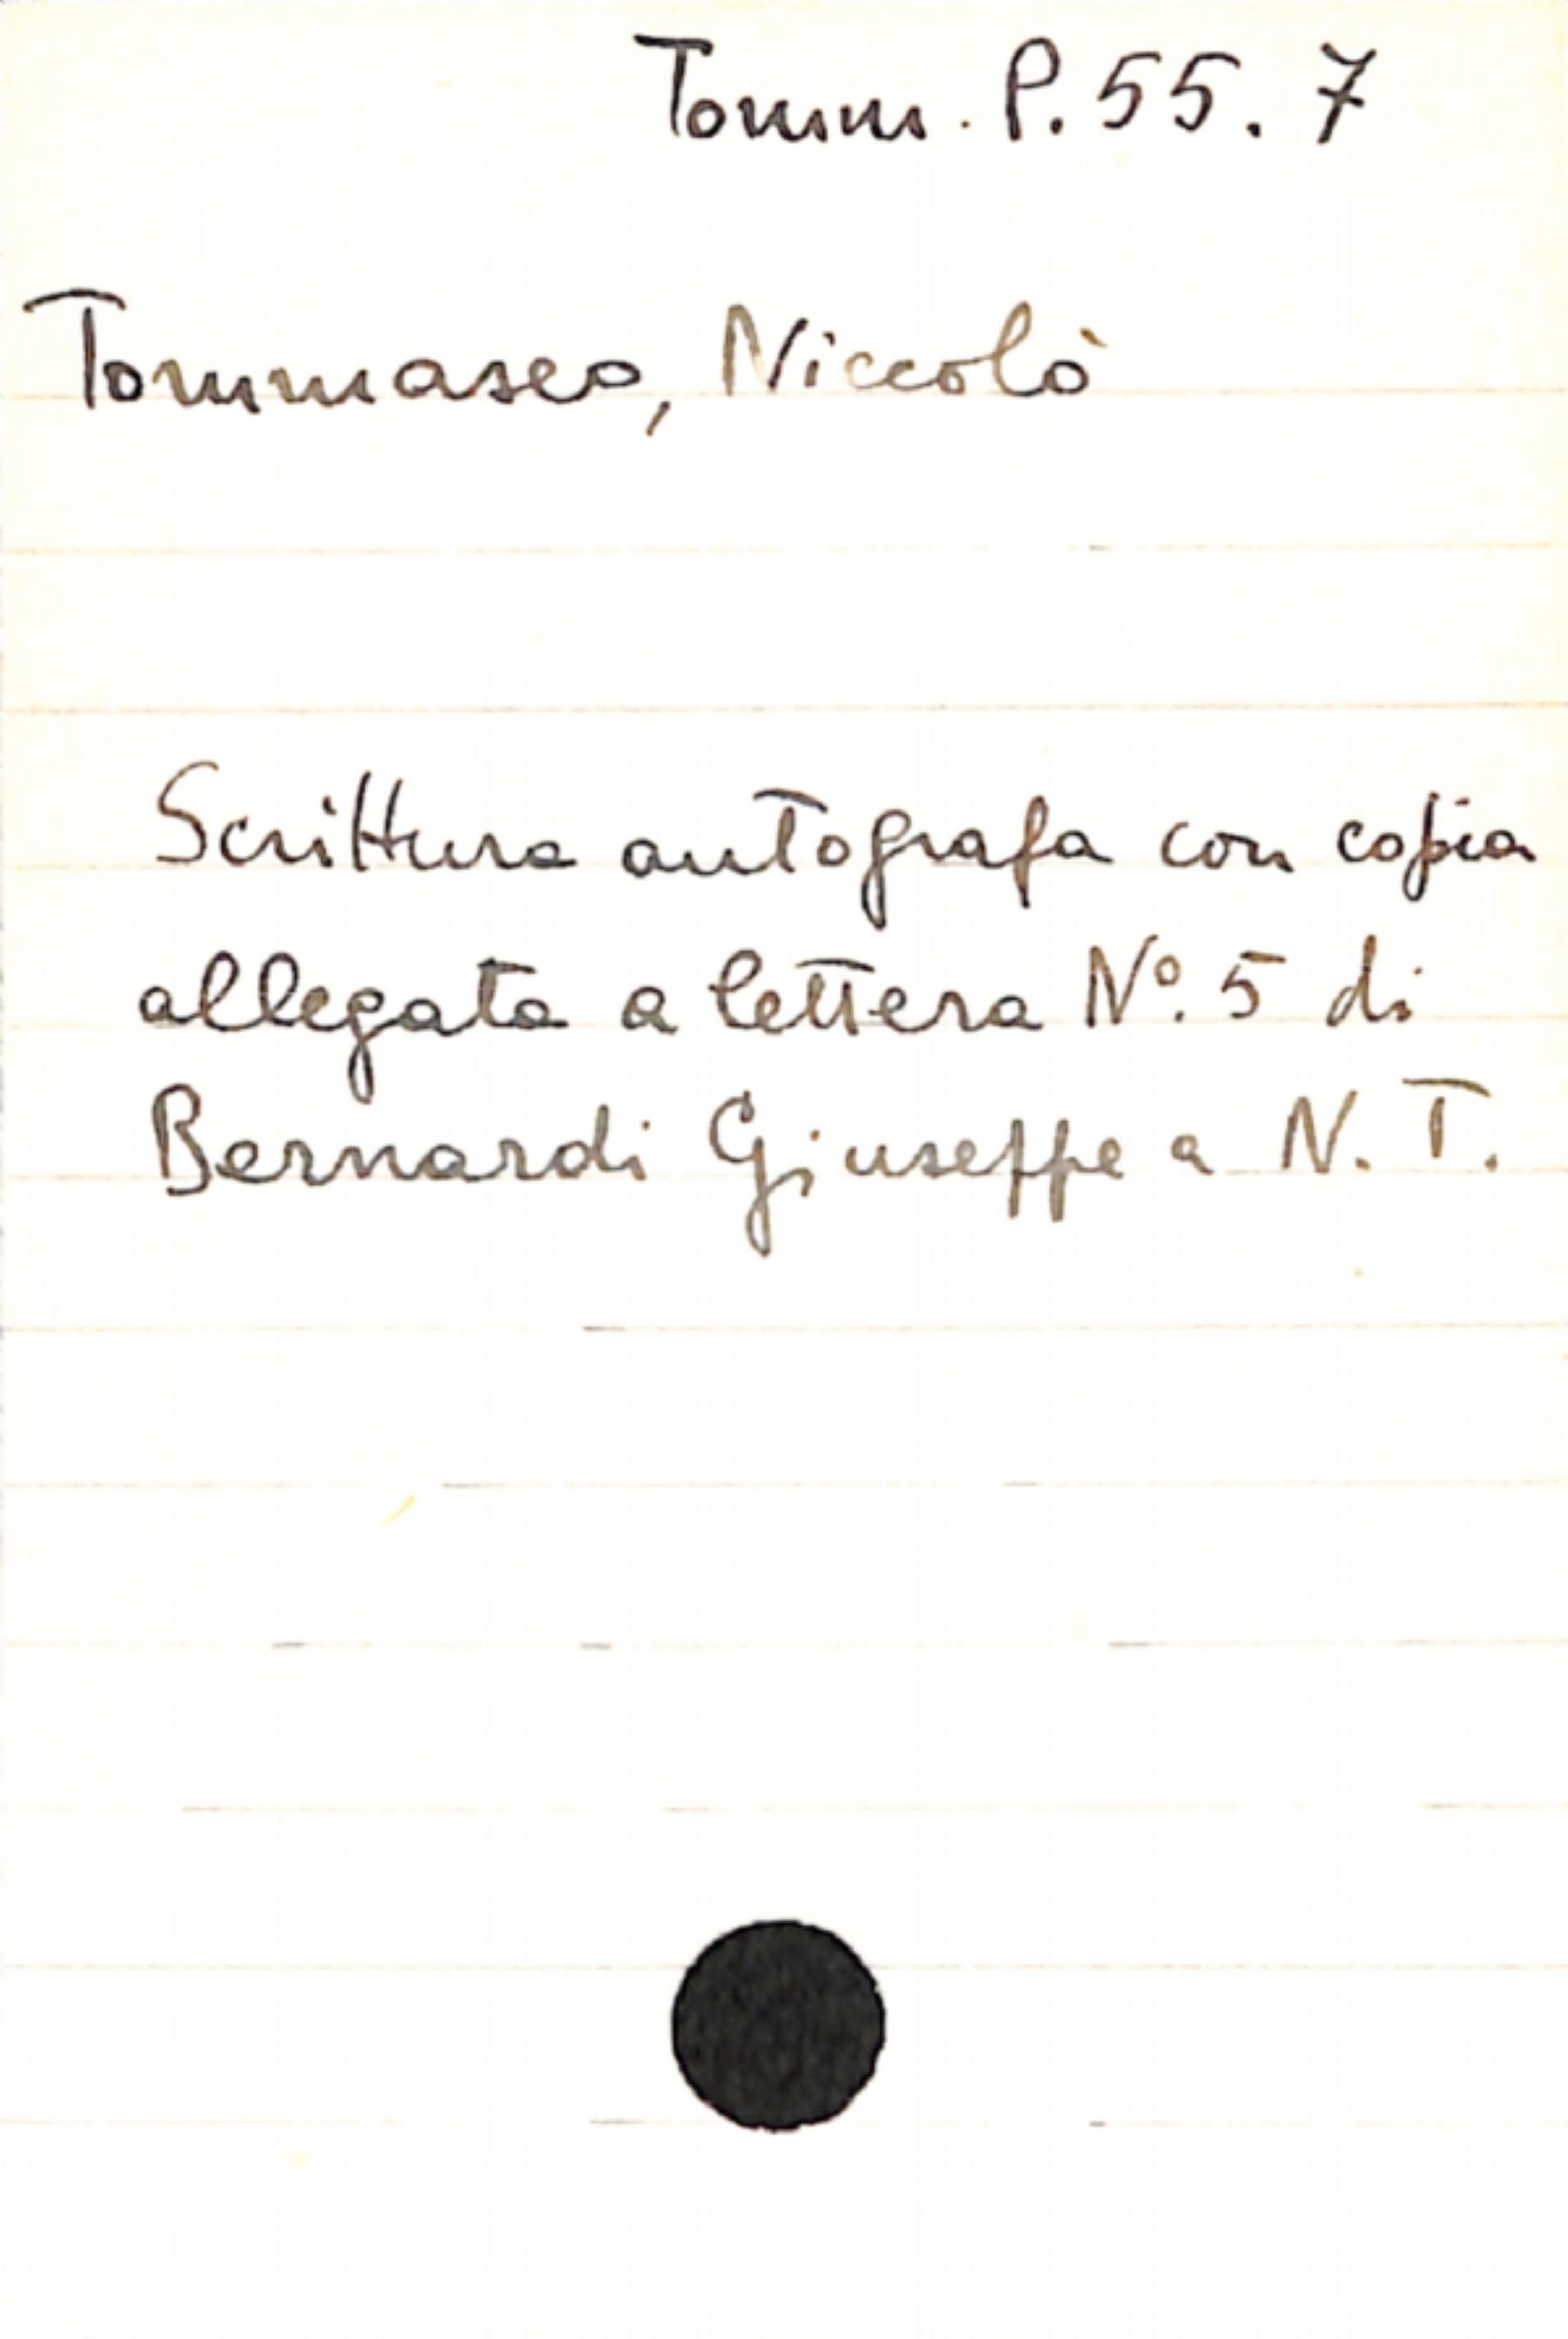 Tomm. P. 55. 7
Tommaseo, Niccolò
Scrittura autografa con copia
allegata a lettera Nº. 5 di
Bernardi Giuseppe a N. T.